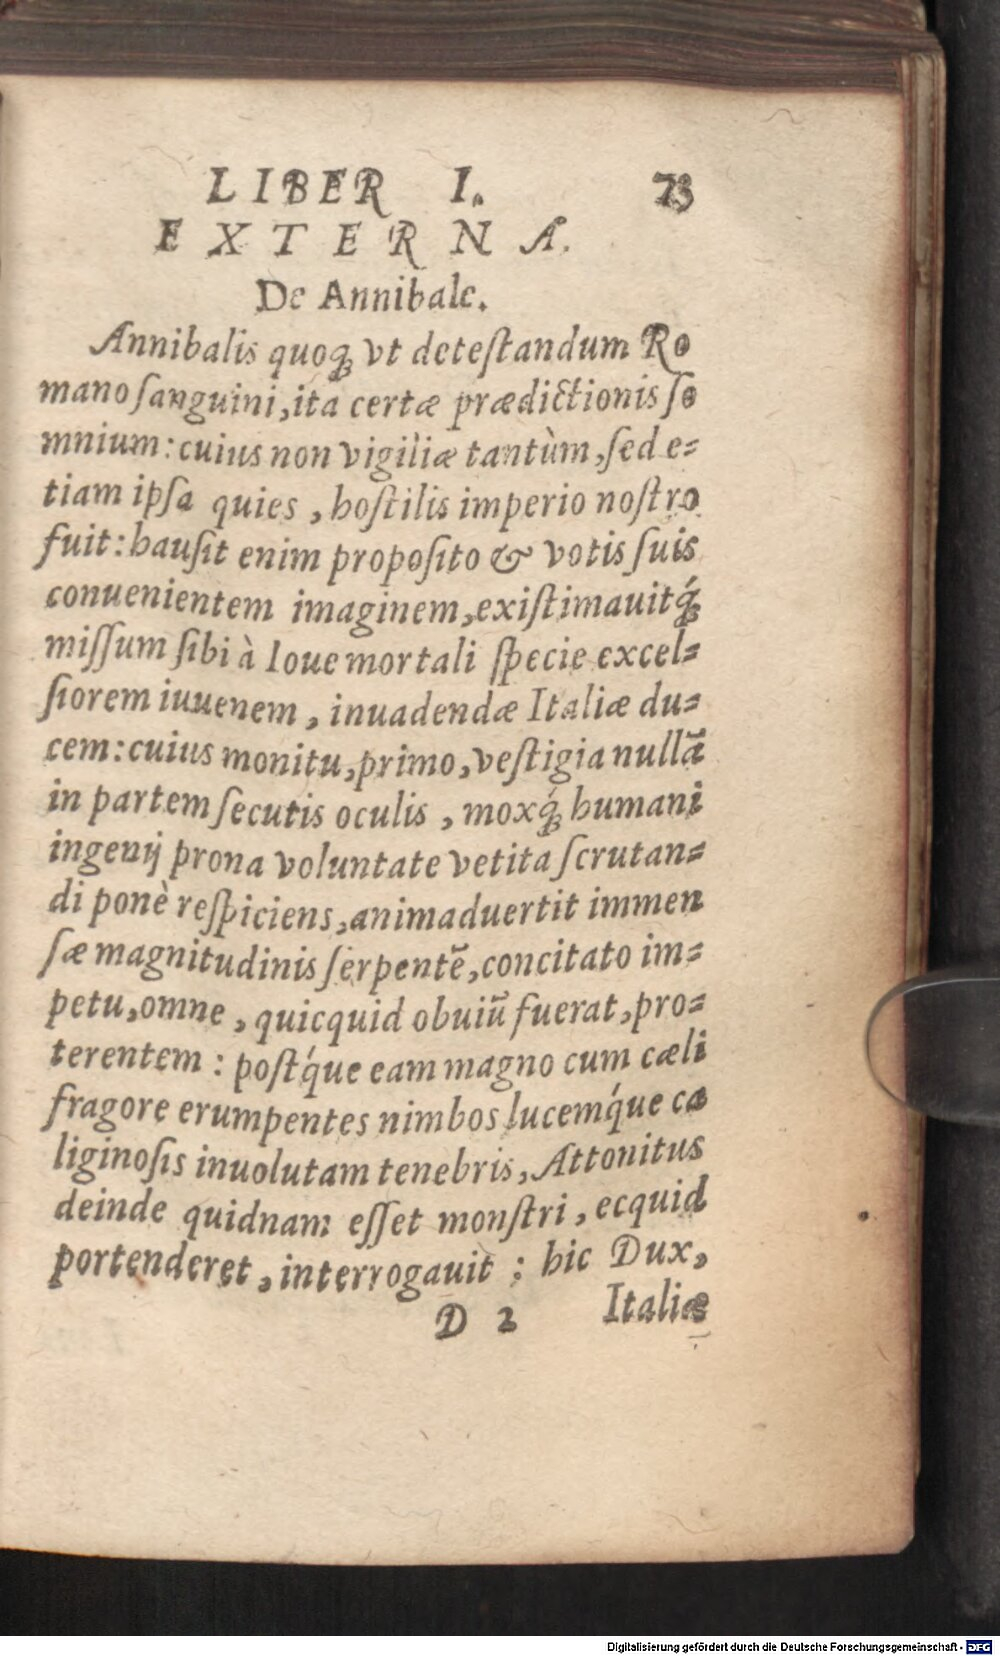 LIBER I. 73
EXTERNA.
De Annibale.
Annibalis quoqꝫ vt deteſtandum Ro
mano ſanguini, ita certæ prædictionis ſo
mnium: cuius non vigiliæ tantùm, ſed e⸗
tiam ipſa quies, hoſtilis imperio noſtro
fuit: hauſit enim propoſito & votis ſuis
conuenientem imaginem, exiſtimauitq́ꝫ
miſſum ſibi à Ioue mortali ſpecie excel⸗
ſiorem iuuenem, inuadendæ Italiæ du⸗
cem: cuius monitu, primo, veſtigia nullā
in partem ſecutis oculis, moxq́ꝫ humani
ingenij prona voluntate vetita ſcrutan⸗
di ponè reſpiciens, animaduertit immen
ſæ magnitudinis ſerpentē, concitato im⸗
petu, omne, quicquid obuiū fuerat, pro⸗
terentem: poſtq́ue eam magno cum cæli
fragore erumpentes nimbos lucemq́ue ca
liginoſis inuolutam tenebris, Attonitus
deinde quidnam eſſet monſtri, ecquid
portenderet, interrogauit: hic Dux,
D 2 Italiæ
Digitalisierung gefördert durch die Deutsche Forschungsgemeinschaft - DFG